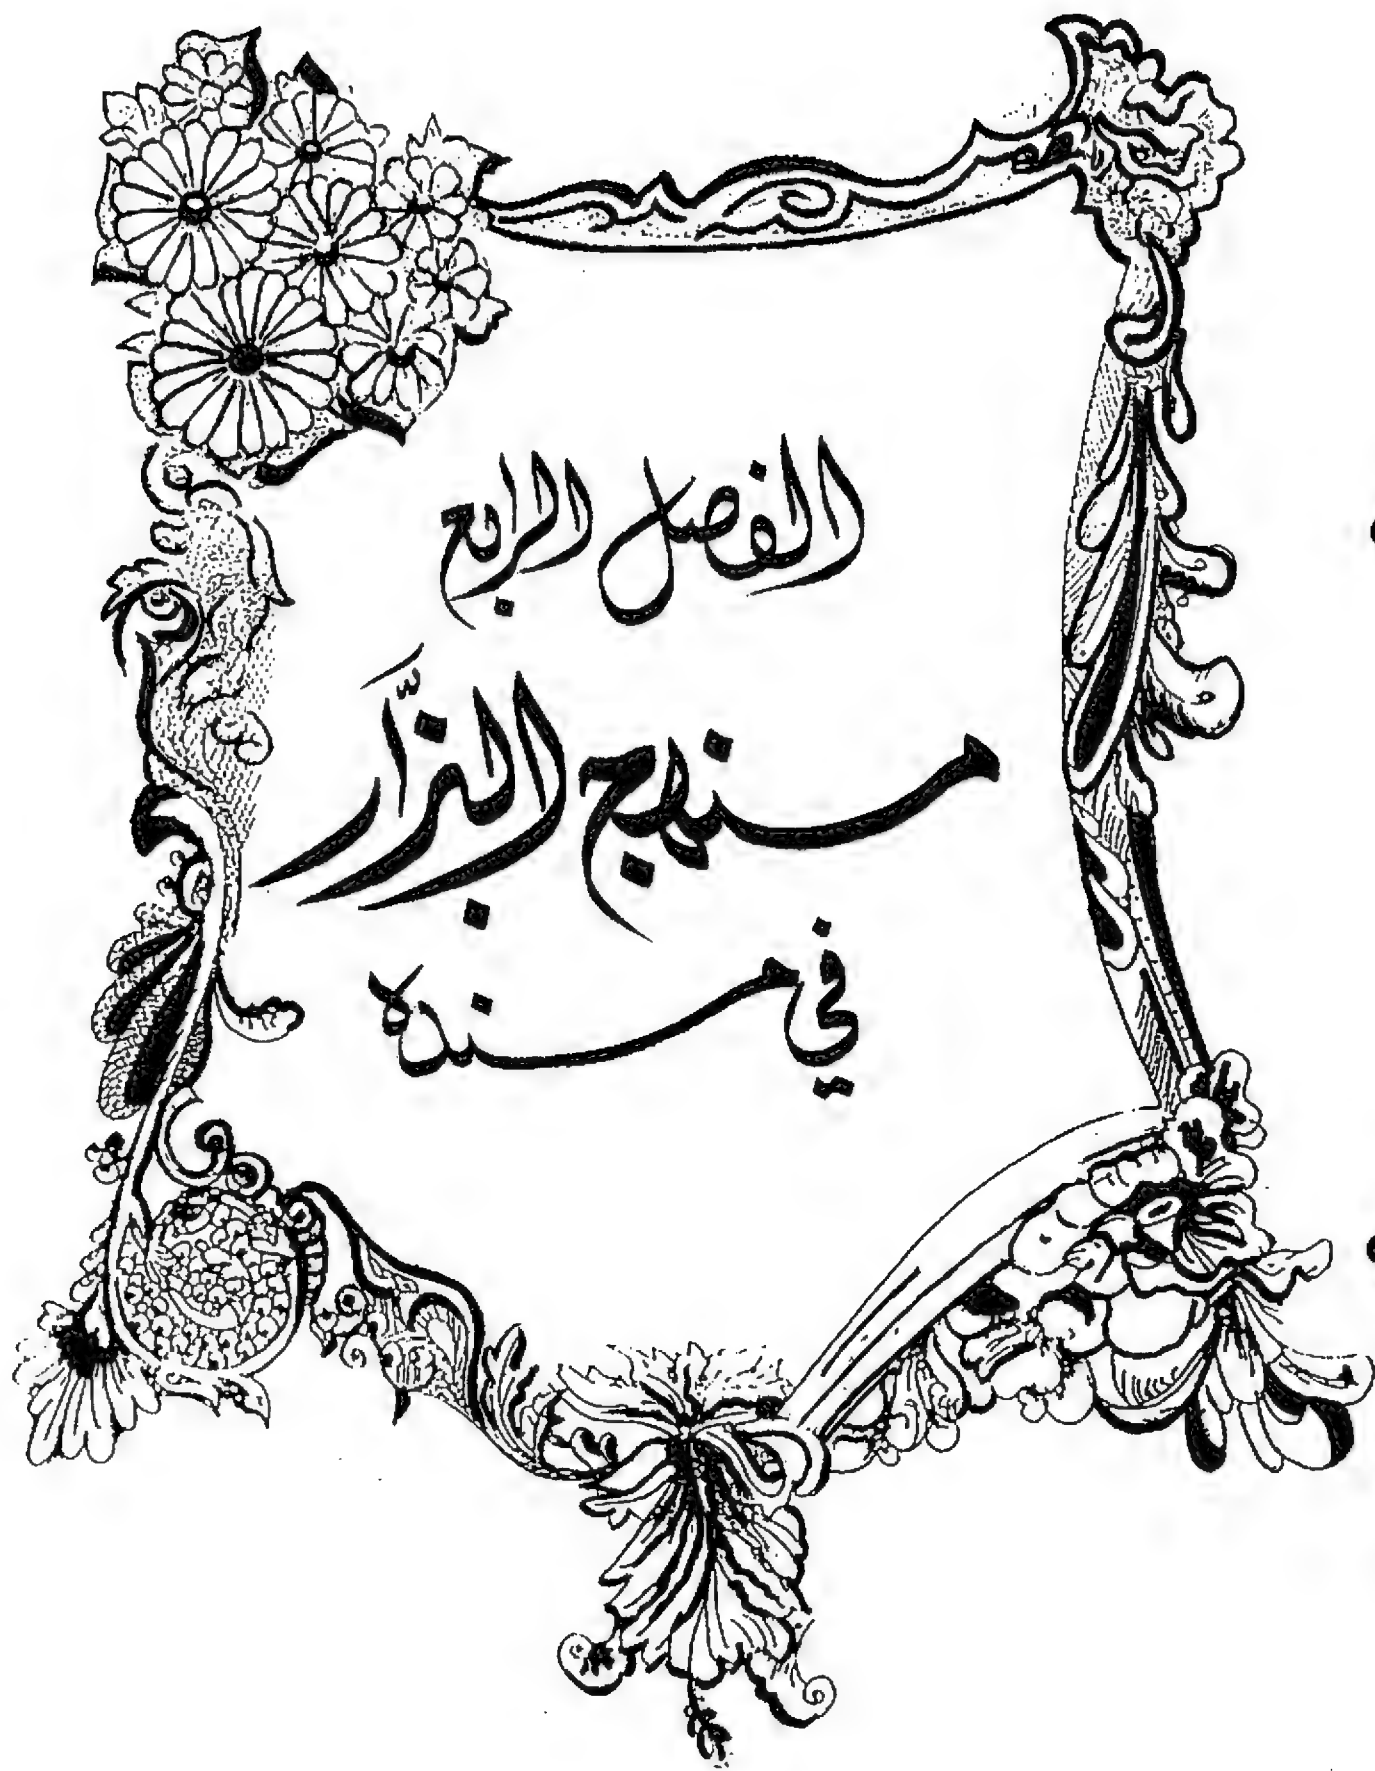 الفصل الرابع
منهج البزَّار
في مسنده